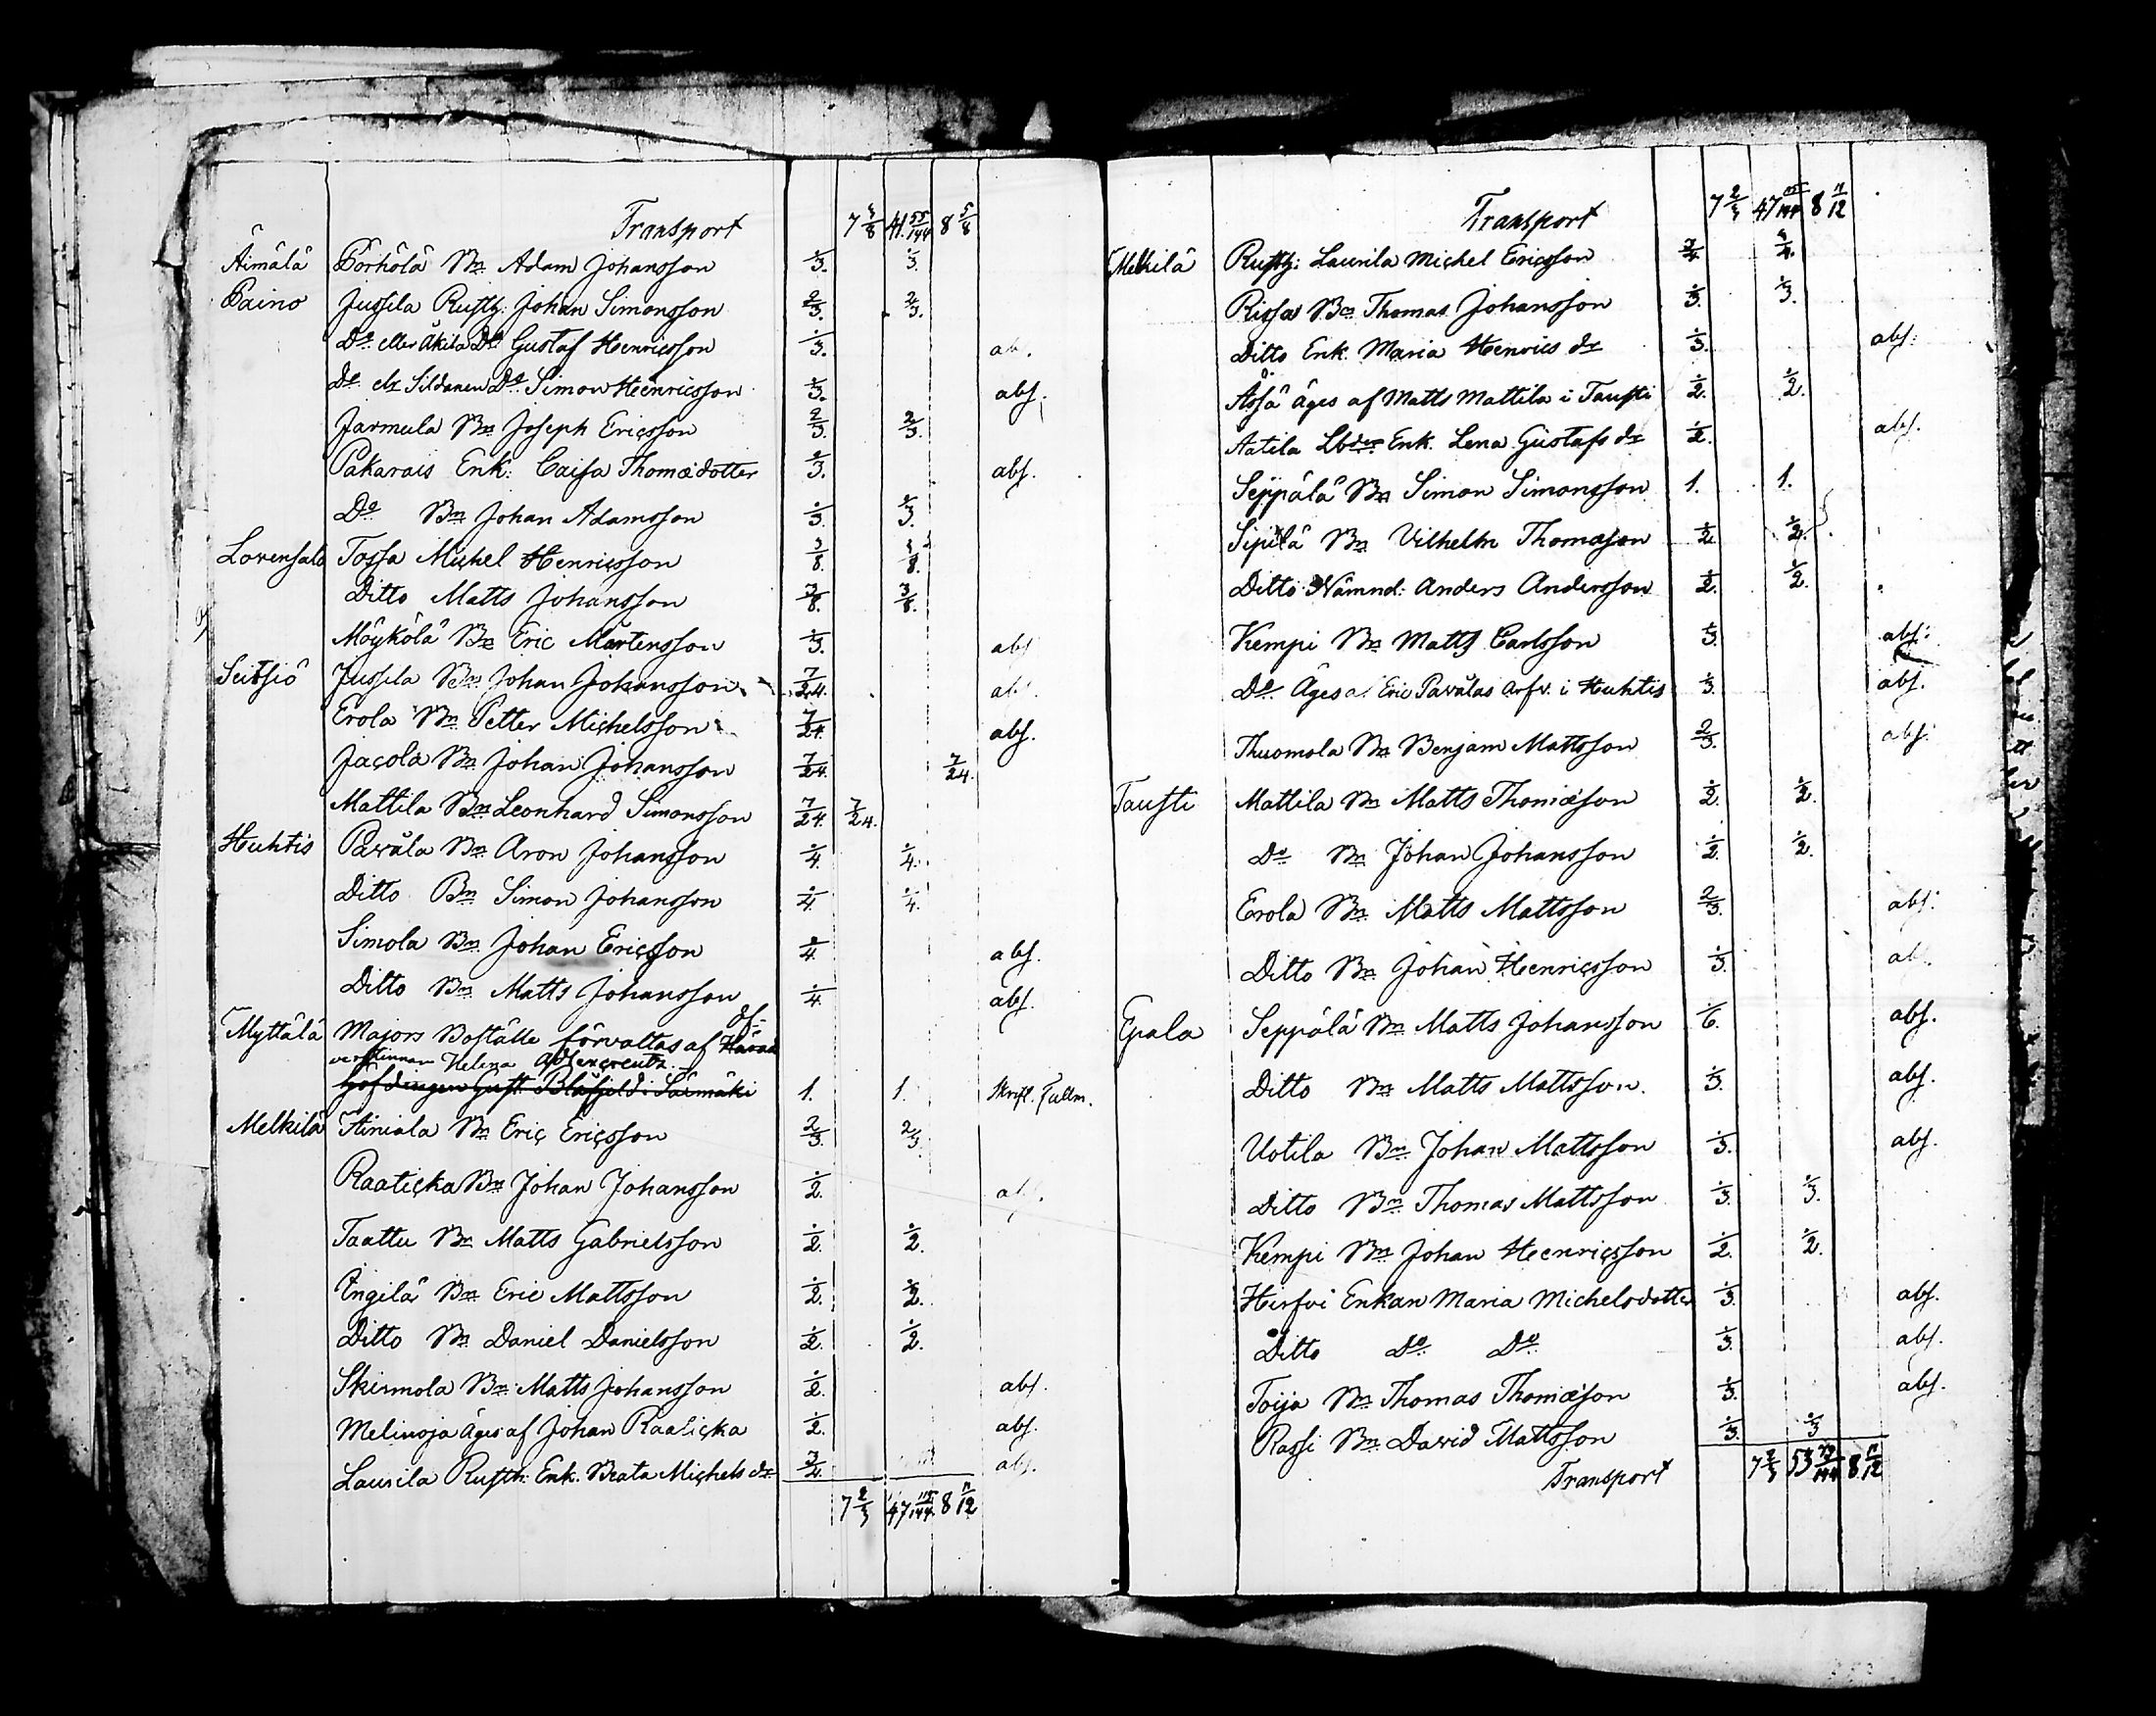 Transport 7 3/8 41 55/144 8 5/8
Äimälä Pörhölä Bn Adam Johansson 1/3. 1/3.
Paino Jussila Rusth: Johan Simonsson 2/3. 2/3.
Do eller Äkilä Do Gustaf Henricsson 1/3. ab.
Do elr Sildanen Do Simon Henricsson 1/3. abs.
Jarmula Bn Joseph Ericsson 2/3. 2/3.
Pakarais Enk: Caisa Thomædotter 1/3. abs.
Do Bn Johan Adamsson 1/3. 1/3.
Lorensalo Tossa Michel Henricsson 3/8. 3/8.
Ditto Matts Johansson 3/8. 3/8.
Möykölä Bn Eric Mårtensson 1/3. abs
Seitsiö Jussila Bn Johan Johansson 7/24. abs.
Erola Bn Petter Michelsson 7/24. abs.
Jacola Bn Johan Johansson 7/24. 7/24.
Mattila Bn Leonhard Simonsson 7/24. 7/24.
Huhtis Pavåla Bn Aron Johansson 1/4. 1/4.
Ditto Bn Simon Johansson 1/4. 1/4.
Simola Bn Johan Ericsson 1/4. abs.
Ditto Bn Matts Johansson 1/4. abs.
Myttälä Majors Boställe förvaltas af Öf-
verstinnan Helena Adlercreutz
höfdingen Gust. Blåfjeld i Särmäki 1. 1. Skrift. Fullm.
Melkilä Hiniala Bn Eric Ericsson 2/3. 2/3.
Raaticka Bn Johan Johansson 1/2. abs.
Taattu Bn Matts Gabrielsson 1/2. 1/2.
Ängilä Bn Eric Mattsson 1/2. 1/2.
Ditto Bn Daniel Danielsson 1/2. 1/2.
Skinnola Bn Matts Johansson 1/2. abs.
Melinoja äges af Johan Raaticka 1/2. abs.
Laurila Rusth: Enk. Beata Michels dr 3/4. abs.
7 2/3 47 115/144 8 11/12
Transport 7 2/3 47 115/144 8 11/12
Melkilä Rusth: Laurila Michel Ericsson 3/4. 3/4.
Rissa Bn Thomas Johansson 1/3. 1/3.
Ditto Enk. Maria Henrics dr 1/3. abs:
Assä äges af Matts Mattila i Tausti 1/2. 1/2.
Aatila Enk. Lena Gustafs dr 1/2. abs.
Seppälä Bn Simon Simonsson 1. 1.
Sipilä Bn Vilhelm Thomæson 1/2. 1/2.
Ditto Nämnd: Anders Andersson 1/2. 1/2.
Kempi Bn Matts Carlsson 1/3. abs:
Do Äges af Eric Pavålas Arfv. i Huhtis 1/3. abs.
Thuomola Bn Benjam Mattsson 2/3. abs.
Tausti Mattila Bn Matts Thomæson 1/2. 1/2.
Do Bn Johan Johansson 1/2. 1/2.
Erola Bn Matts Mattsson 2/3. abs.
Ditto Bn Johan Henricsson 1/3. ab.
Epala Seppälä Bn Matts Johansson 1/6. abs.
Ditto Bn Matts Mattsson. 1/3. abs.
Uotila Bn Johan Mattsson 1/3. abs.
Ditto Bn Thomas Mattsson 1/3. 1/3.
Kempi Bn Johan Henricsson 1/2. 1/2.
Hirfvi Enkan Maria Michelsdotter 1/3. abs.
Ditto Do Do 1/3. abs.
Toija Bn Thomas Thomæson 1/3. abs.
Rassi Bn David Mattsson 1/3. 1/3
Transport 7 2/3 53 8 11/12